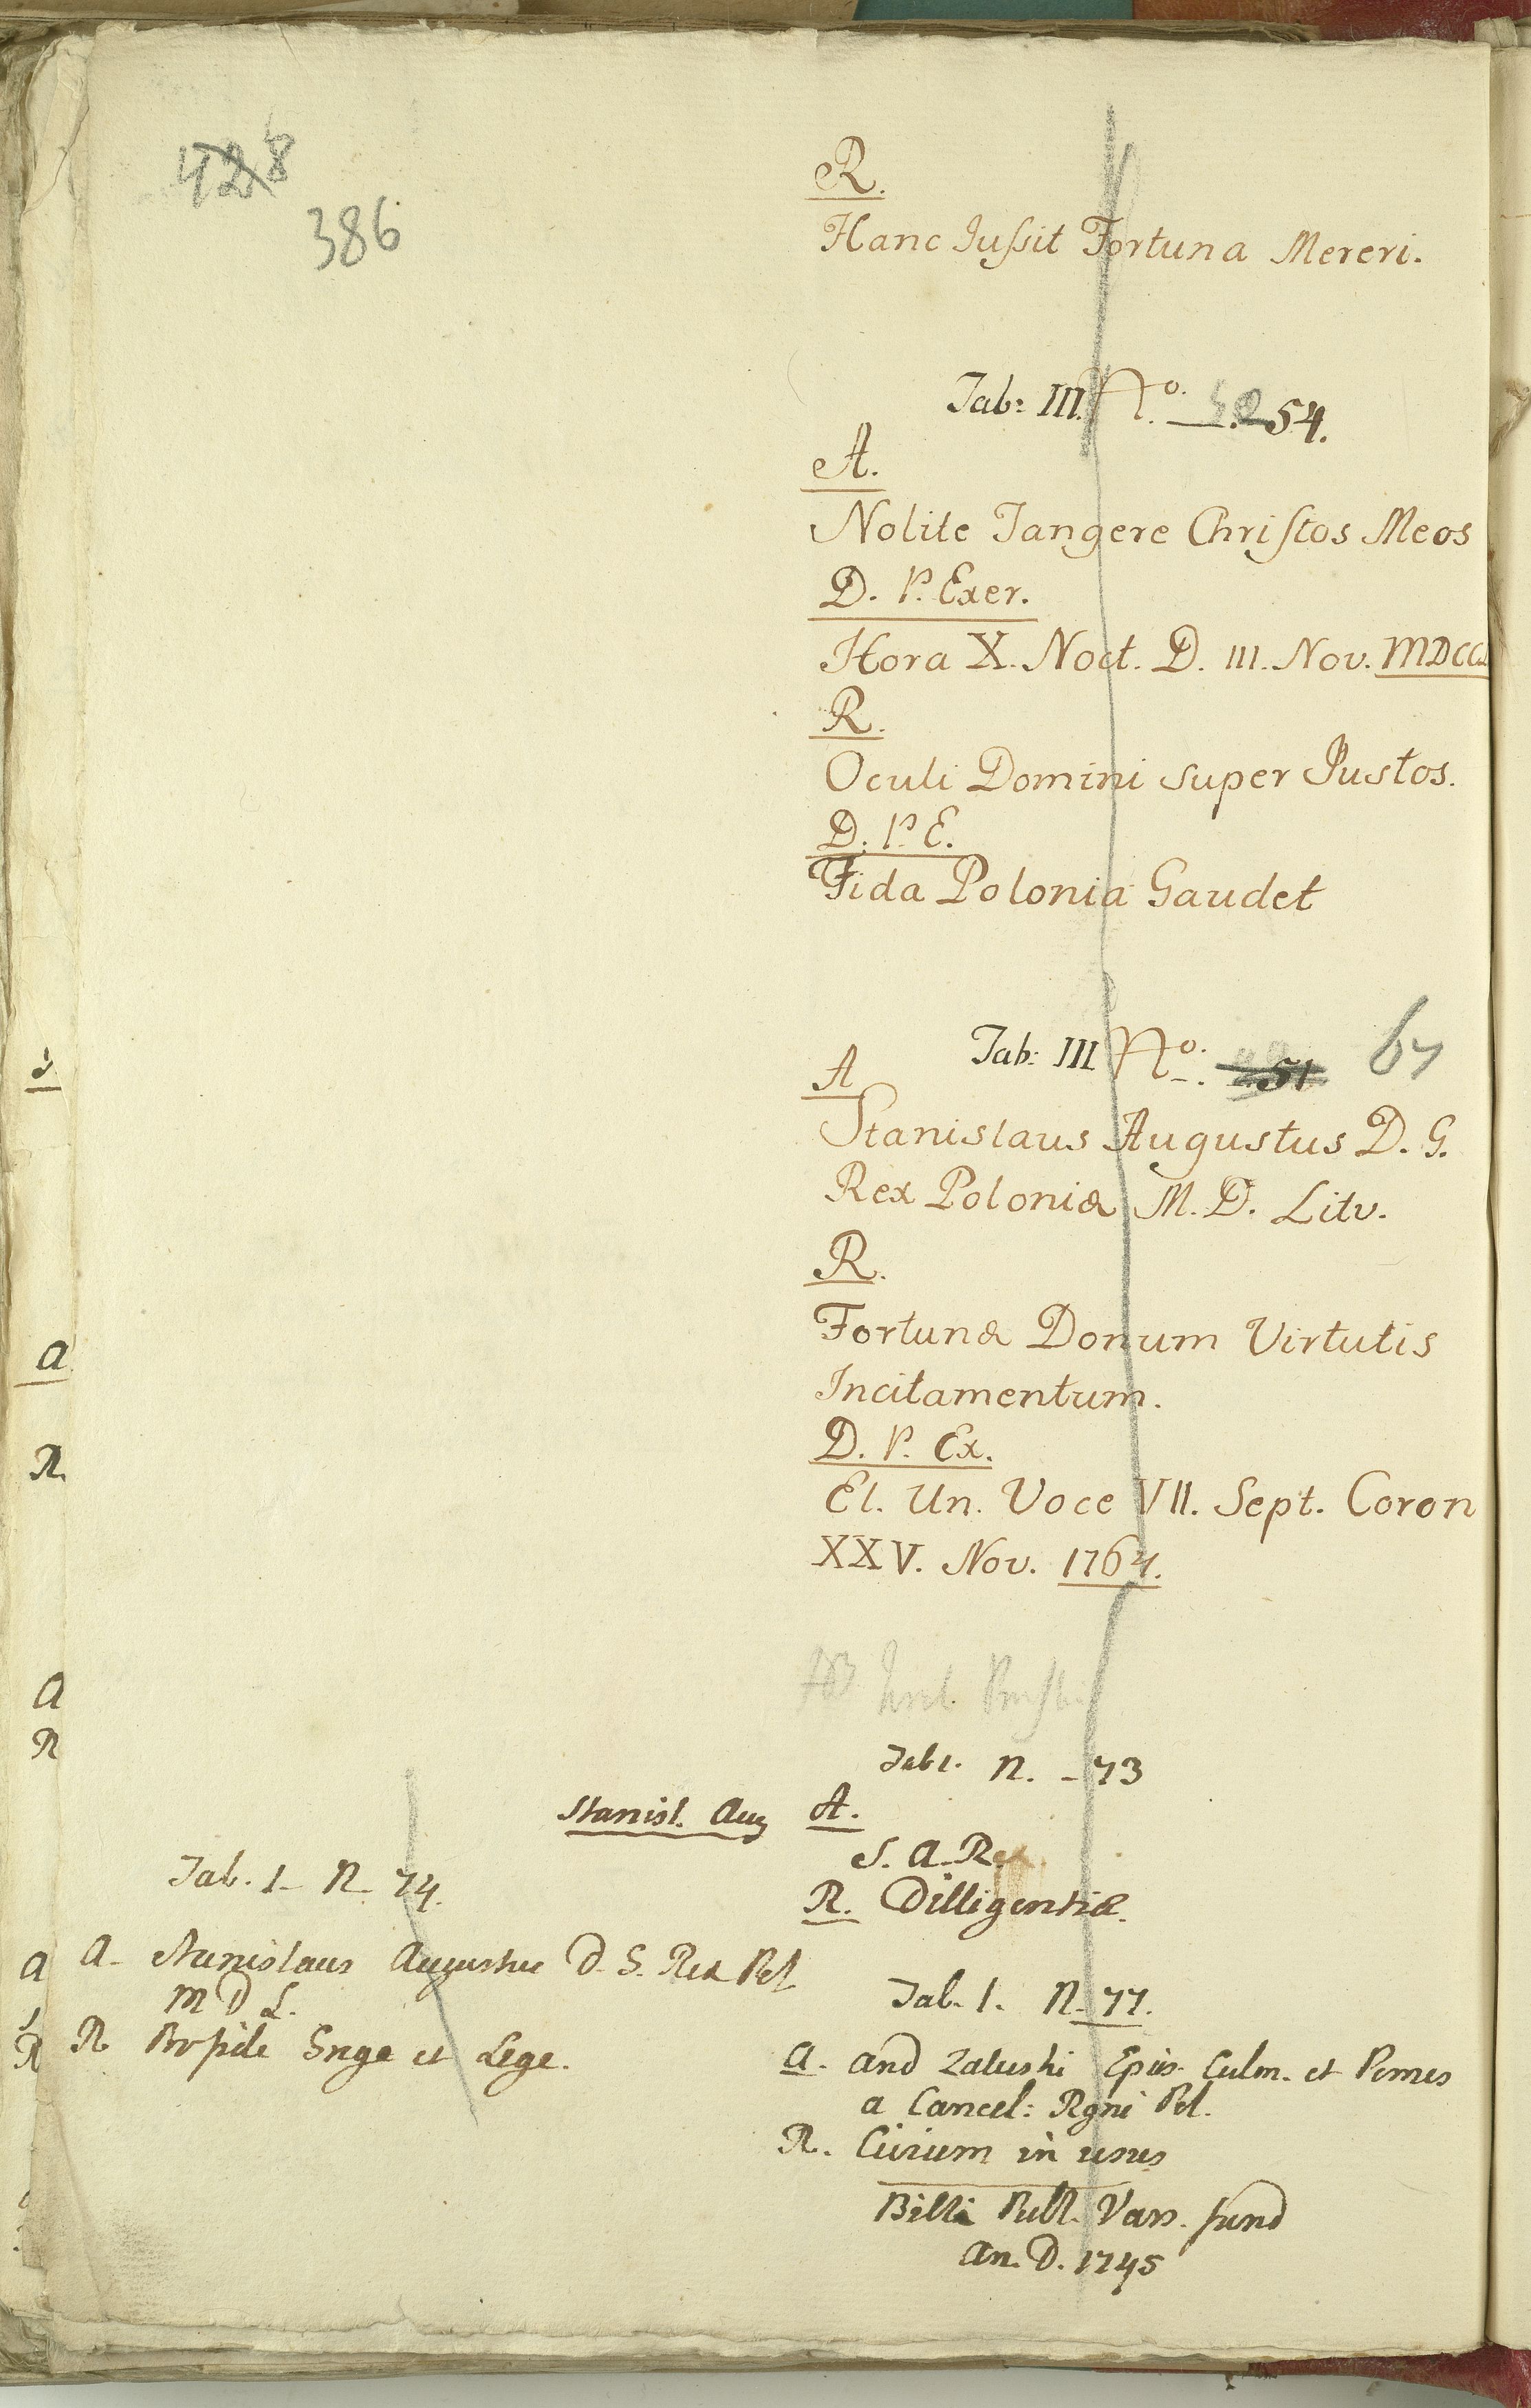 428
386
R.
Hanc Juſsit Fortuna Mereri.
Tab: III. No. 54.
A.
Nolite Tangere Chriſtos Meos
D. P. Exer.
Hora X. Noct. D. III. Nov. MDCC
R.
Oculi Domini super Justos.
D. P. E.
Fida Polonia Gaudet
Tab: III No. 51 67
A
Stanislaus Augustus D. G.
Rex Poloniæ M. D. Litv.
R.
Fortunæ Donum Virtutis
Incitamentum.
D. P. Ex.
El. Un. Voce VII. Sept. Coron
XXV. Nov. 1764.
Tab 1. N. - 73
Stanisl. Aug A.
S. A. Rex
R. Dilligentiæ.
Tab. 1 - N - 74.
A - Stanislaus Augustus D. G. Rex Pol
M D L.
R Pro fide Grege et Lege.
Tab. 1. N. 77.
A. And Zaluski Epis. Culm. et Pomes
a Cancel: Rgni Pol.
R. Civium in usus
Billi Publ. Vars. fund
An. D. 1745
a
R.
a
R
a
R